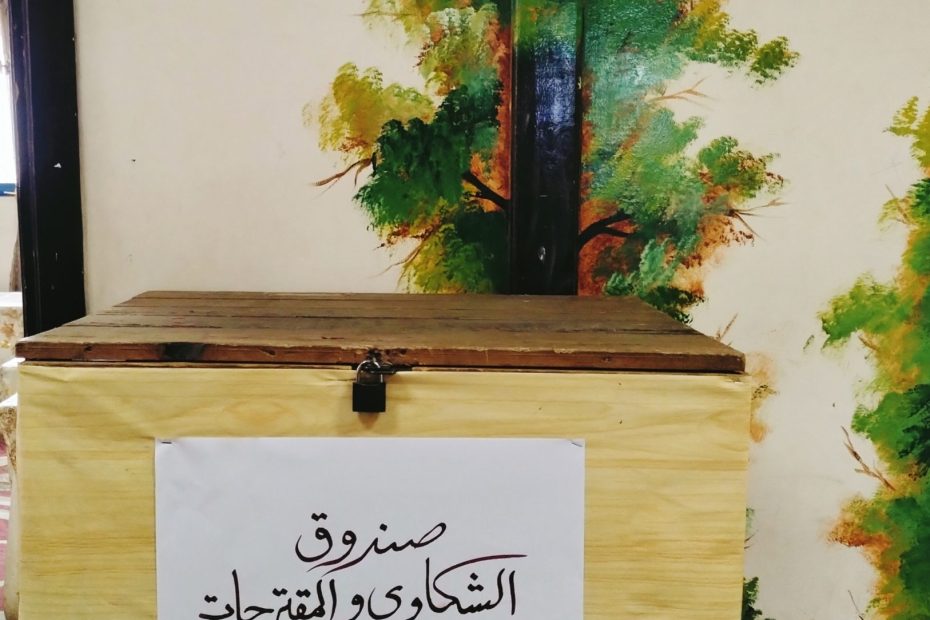 صندوق
الشكاوى والمقترحات